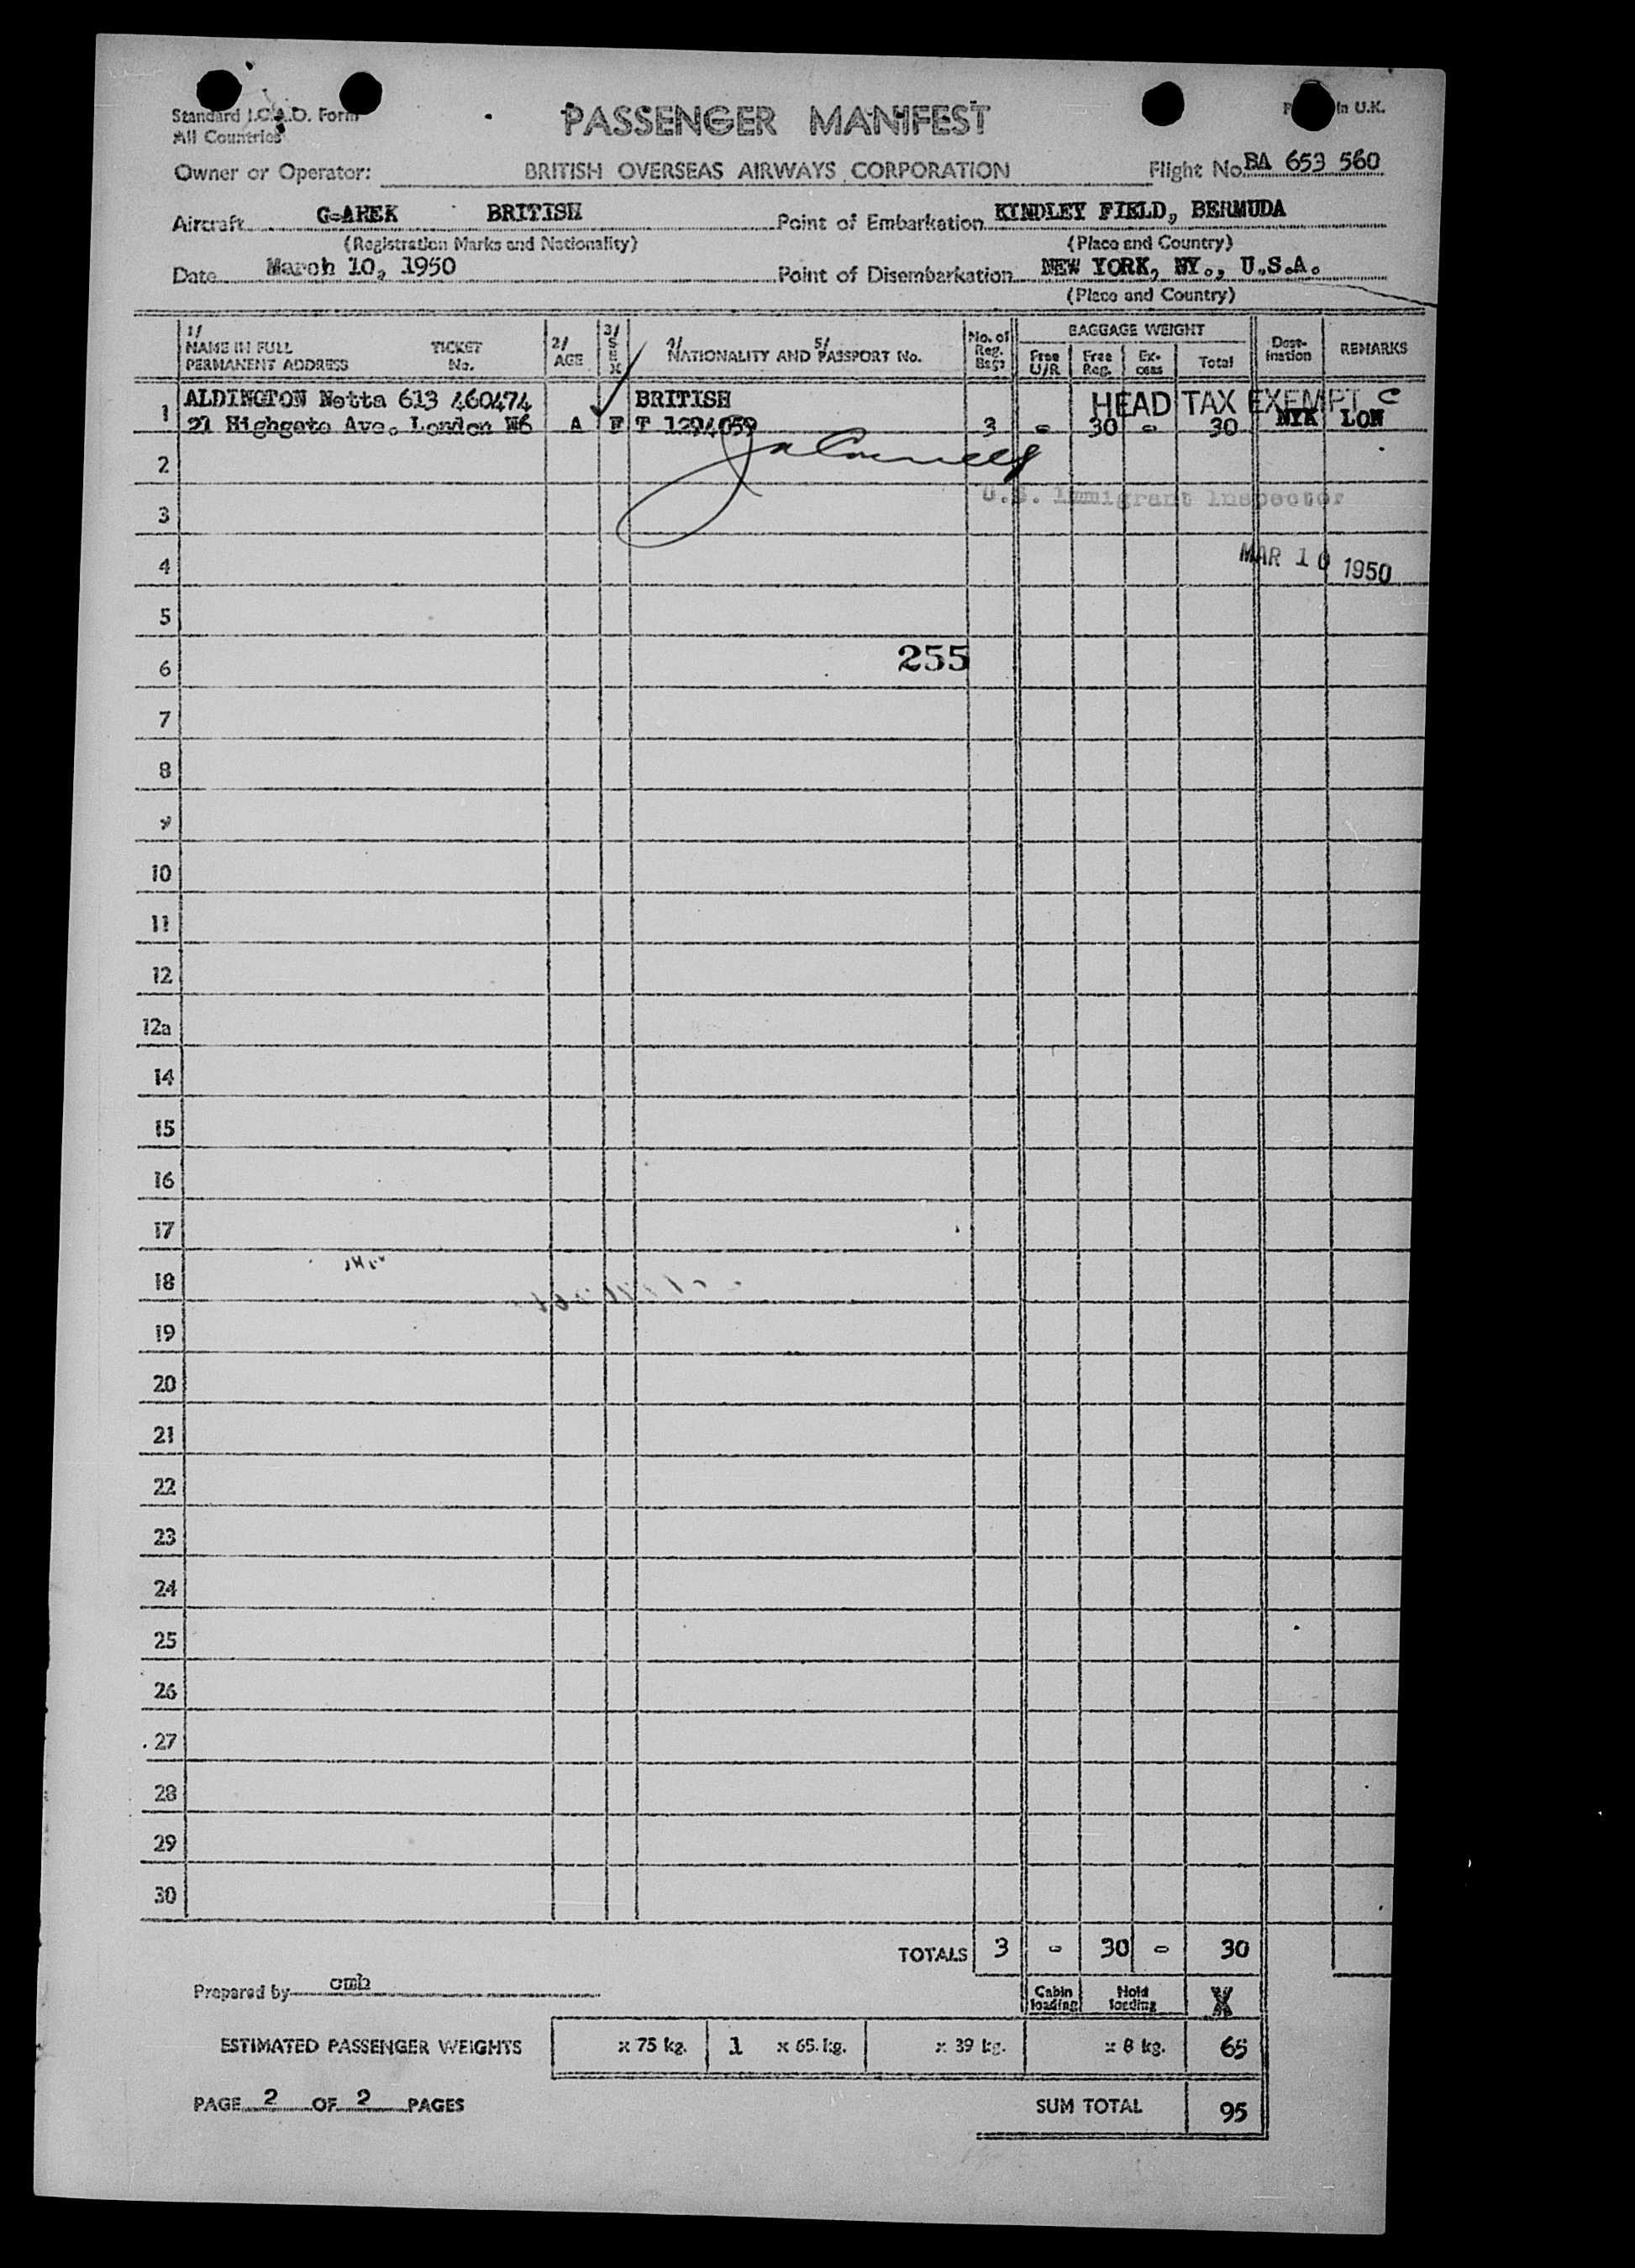 Standard I.C.A.O. Form
All Countries
PASSENGER MANIFEST
in U.K.
Owner or Operator: BRITISH OVERSEAS AIRWAYS CORPORATION Flight No. BA 653 560
Aircraft G-AHEK BRITISH Point of Embarkation KINDLEY FIELD, BERMUDA
(Registration Marks and Nationality) (Place and Country)
Date March 10, 1950 Point of Disembarkation NEW YORK, NY., U.S.A.
(Place and Country)
1/ NAME IN FULL PERMANENT ADDRESS TICKET No. 2/ AGE 3/ SEX 4/ 5/ NATIONALITY AND PASSPORT No. No. of Reg. Bags BAGGAGE WEIGHT Free U/R Free Reg. Excess Total Destination REMARKS
ALDINGTON Netta 613 460474 BRITISH HEAD TAX EXEMPT C
1 21 Highgate Ave. London N6 A F T 1294059 3 - 30 - 30 NYK LON
2
U.S. Immigrant Inspector
3
4 MAR 10 1950
5
6 255
7
8
9
10
11
12
12a
14
15
16
17
18
19
20
21
22
23
24
25
26
27
28
29
30
TOTALS 3 - 30 - 30
Prepared by cmh Cabin loading Hold loading X
ESTIMATED PASSENGER WEIGHTS x 75 kg. 1 x 65 kg. x 39 kg. x 8 kg. 65
PAGE 2 OF 2 PAGES SUM TOTAL 95